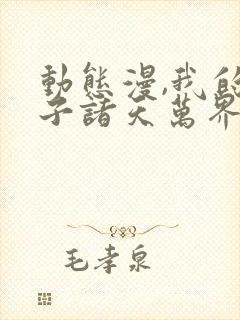 動態漫,我的
子諸天萬界
毛孝泉